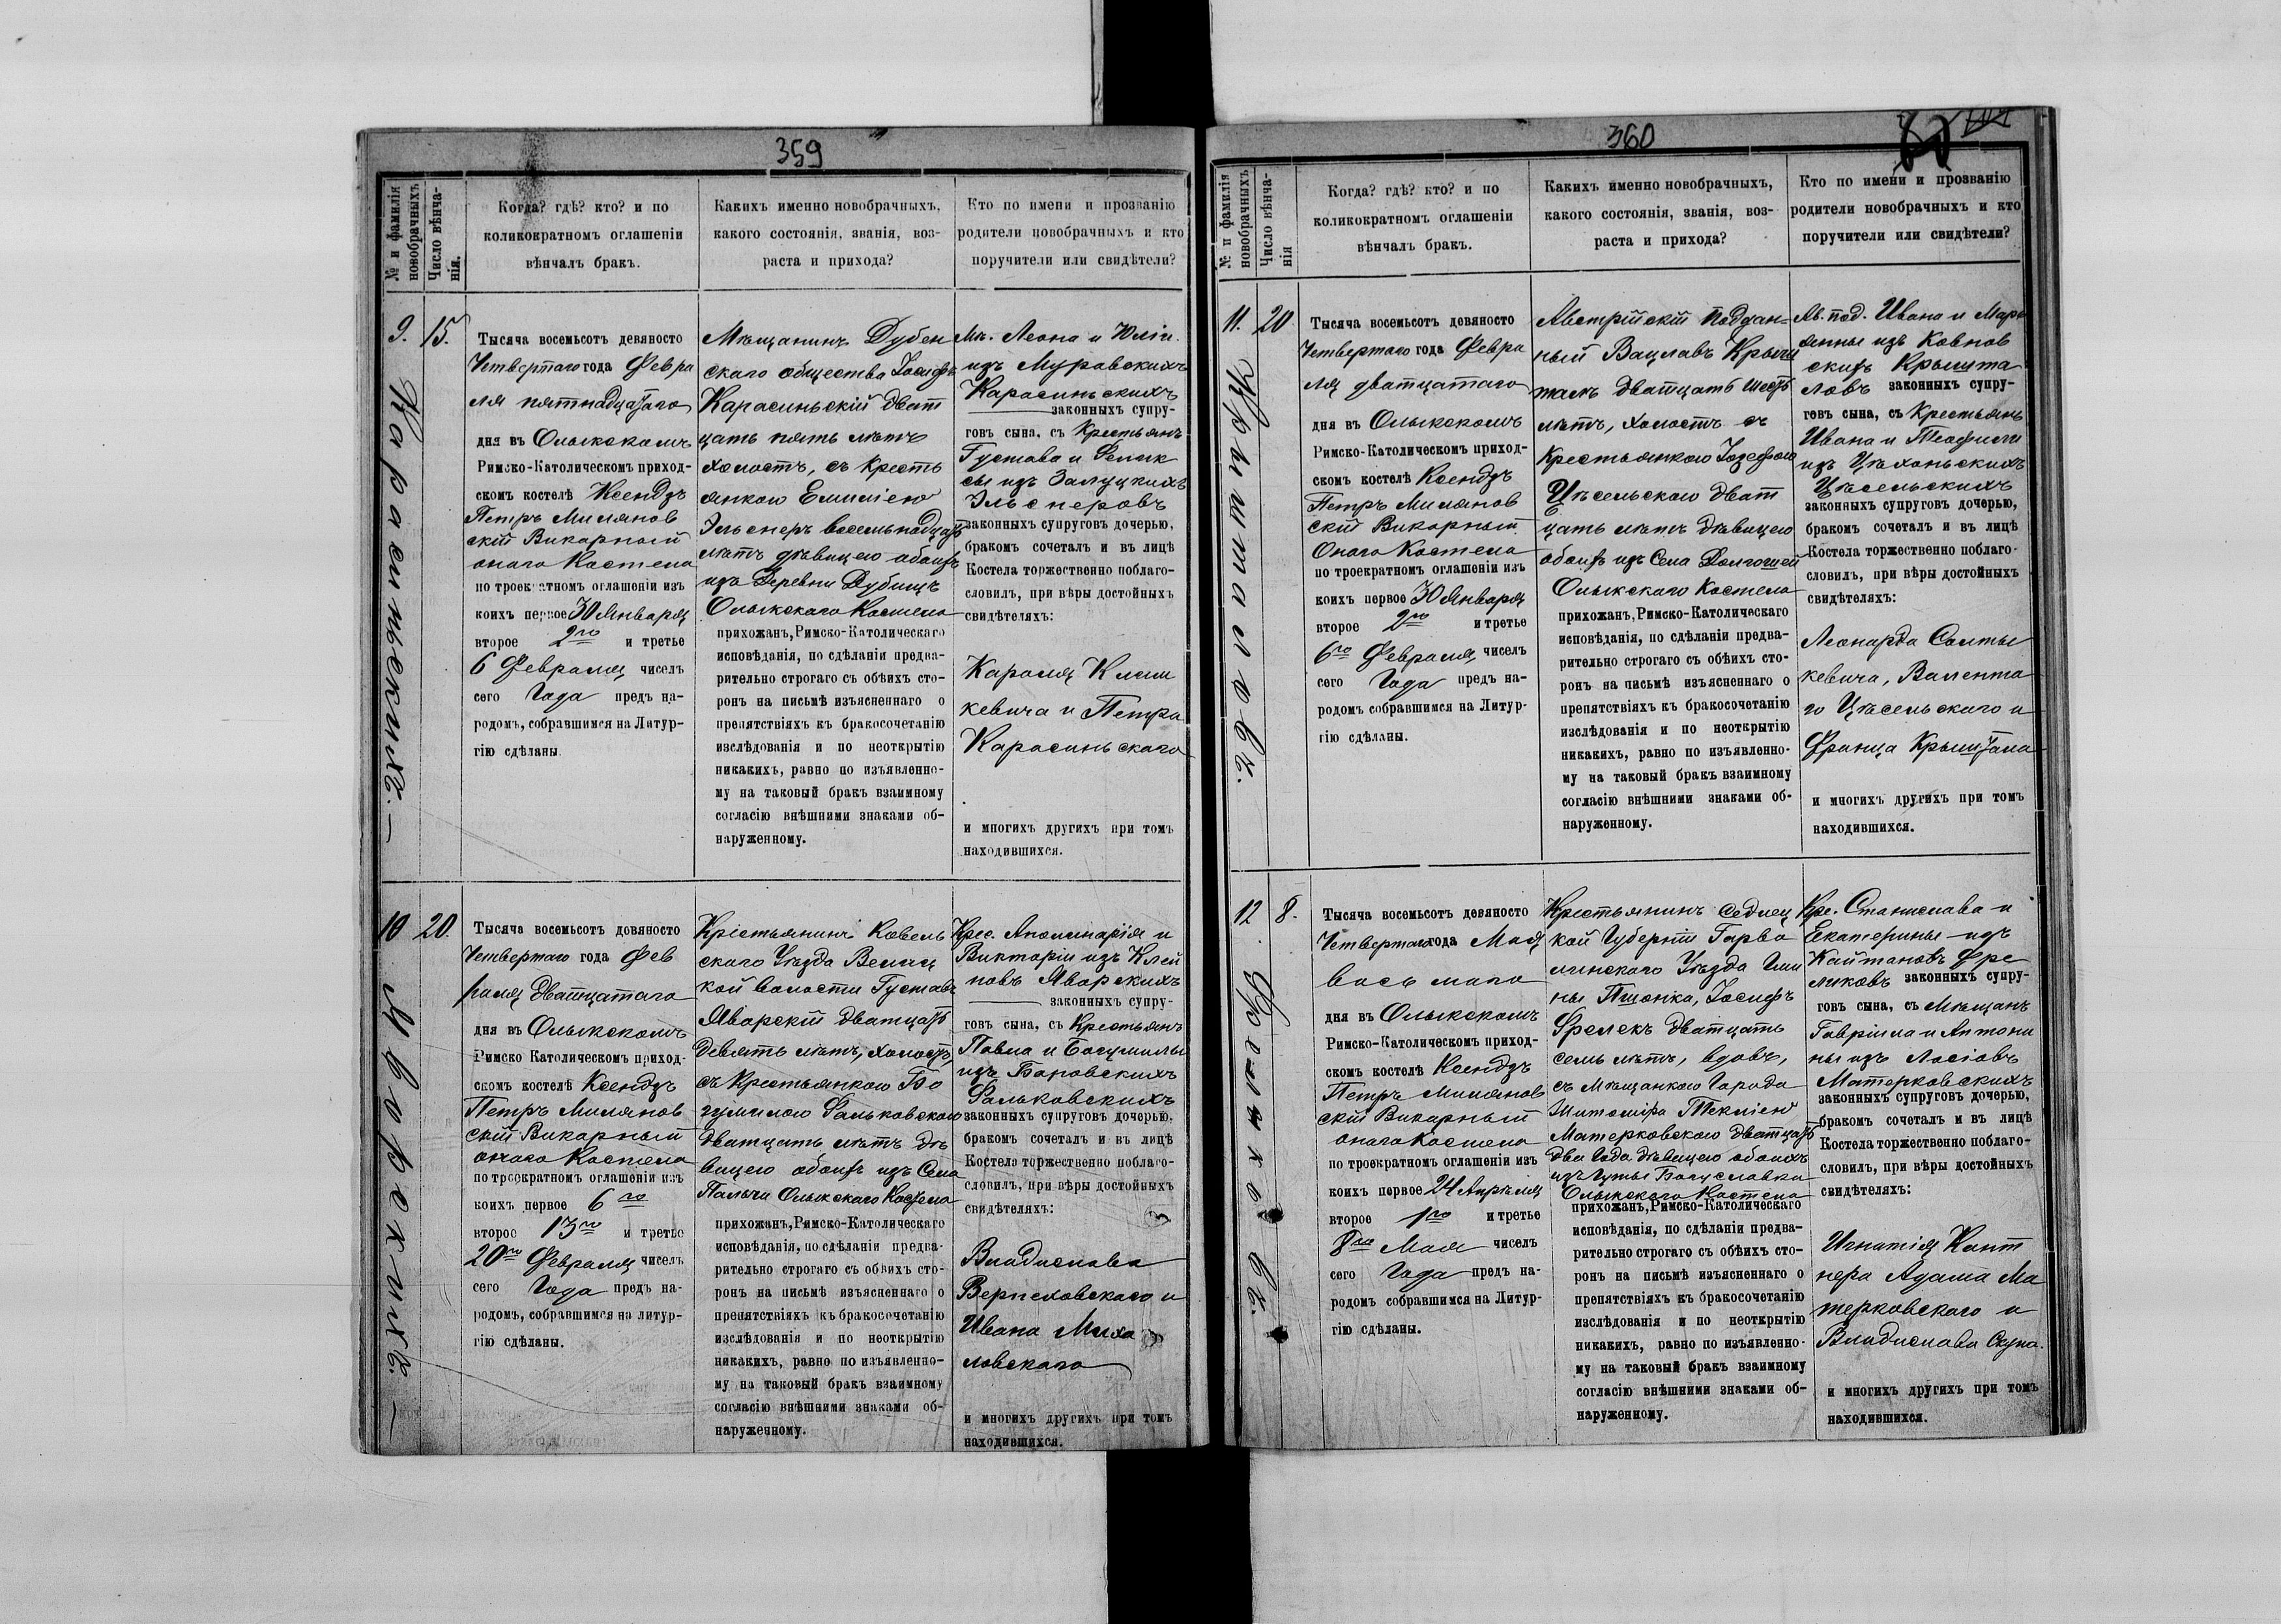 359
№ и фамилія
новобрачныхъ
Число вѣнча-
нія.
Когда? гдѣ? кто? и по
коликократномъ оглашеніи
вѣнчалъ бракъ.
Какихъ именно новобрачныхъ,
какого состоянія, званія, воз-
раста и прихода?
Кто по имени и прозванію
родители новобрачныхъ и кто
поручители или свидѣтели?
9.
Карасиньскихъ. —
15.
Тысяча восемьсотъ девяносто
Четвертаго года Февра
ля пятнадцатаго
дня въ Олыкскомъ
Римско-Католическомъ приход-
скомъ костелѣ Ксендзъ
Петръ Милянов
скій Викарный
онаго Костела
по троекратномъ оглашеніи изъ
коихъ первое 30 Января
второе 2го и третье
6 Февраля чиселъ
сего Года предъ на-
родомъ, собравшимся на Литур-
гію сдѣланы.
Мѣщанинъ Дубен
скаго общества Іосифъ
Карасиньскій дват
цать пять лѣтъ
холостъ, съ кресть
янкою Емиліею
Эльснеръ восемьнадцать
лѣтъ дѣвицею обоихъ
изъ Деревни Дубищъ
Олыкскаго Костела
прихожанъ, Римско-Католическаго
исповѣданія, по сдѣланіи предва-
рительно строгаго съ обѣихъ сто-
ронъ на письмѣ изъясненнаго о
препятствіяхъ къ бракосочетанію
изслѣдованія и по неоткрытію
никакихъ, равно по изъявленно-
му на таковый бракъ взаимному
согласію внѣшними знаками об-
наруженному.
Мѣ. Леона и Юліи
изъ Муравскихъ
Карасиньскихъ
законныхъ супру-
говъ сына, съ Крестьянъ
Густава и Фелик
сы изъ Залуцкихъ
Эльснеровъ
законныхъ супруговъ дочерью,
бракомъ сочеталъ и въ лицѣ
Костела торжественно поблаго-
словилъ, при вѣры достойныхъ
свидѣтеляхъ:
Кароля Клим
кевича и Петра
Карасиньскаго
и многихъ другихъ при томъ
находившихся.
10
Яворскихъ. —
20.
Тысяча восемьсотъ девяносто
Четвертаго года Фев
раля Двадцатаго
дня въ Олыкскомъ
Римско Католическомъ приход-
скомъ костелѣ Ксендзъ
Петръ Милянов
скій Викарный
онаго Костела
по троекратномъ оглашеніи изъ
коихъ первое 6го
второе 13го и третье
20го Февраля чиселъ
сего Года предъ на-
родомъ, собравшимся на литур-
гію сдѣланы.
Крістьянинъ Ковель
скаго Уѣзда Велиц
кой волости Густавъ
Яворскій дватцать
девять лѣтъ, холостъ,
съ Крестьянкою Бо
гумилою Фальковскою
дватцать лѣтъ дѣ
вицею обоихъ изъ Села
Пальчи Олыкскаго Костела
прихожанъ, Римско-Католическаго
исповѣданія, по сдѣланіи предва-
рительно строгаго съ обѣихъ сто-
ронъ на письмѣ изъясненнаго о
препятствіяхъ къ бракосочетанію
изслѣдованія и по неоткрытію
никакихъ, равно по изъявленно-
му на таковый бракъ взаимному
согласію внѣшними знаками об-
наруженному.
Крес. Аполинарія и
Викторіи изъ Клей
новъ Яворскихъ
законныхъ супру-
говъ сына, съ Крестьянъ
Павла и Богумилы
изъ Баровскихъ
Фальковскихъ
законныхъ супруговъ дочерью,
бракомъ сочеталъ и въ лицѣ
Костела торжественно поблаго-
словилъ, при вѣры достойныхъ
свидѣтеляхъ:
Владислава
Верпеховскаго и
Ивана Миха
ловскаго
и многихъ другихъ при томъ
находившихся.
360
№ и фамилія
новобрачныхъ
Число вѣнча-
нія
Когда? гдѣ? кто? и по
коликократномъ оглашеніи
вѣнчалъ бракъ.
Какихъ именно новобрачныхъ,
какого состоянія, званія, воз-
раста и прихода?
Кто по имени и прозванію
родители новобрачныхъ и кто
поручители или свидѣтели?
11.
Крышталовъ.
20
Тысяча восемьсотъ девяносто
Четвертаго года Февра
ля дватцатаго
дня въ Олыкскомъ
Римско-Католическомъ приход-
скомъ костелѣ Ксендзъ
Петръ Милянов
скій Викарный
Онаго Костела
по троекратномъ оглашеніи изъ
коихъ первое 30 Января
второе 2го и третье
6го Февраля чиселъ
сего Года предъ на-
родомъ собравшимся на Литур-
гію сдѣланы.
Австрійскій поддан-
ный Вацлавъ Крыш
талъ дватцать шесть
лѣтъ, холостъ съ
Крестьянкою Іозефою
Цѣсельскою дват
цать лѣтъ дѣвицею
обоихъ изъ Села Долгошей
Олыкскаго Костела
прихожанъ, Римско-Католическаго
исповѣданія, по сдѣланіи предва-
рительно строгаго съ обѣихъ сто-
ронъ на письмѣ изъясненнаго о
препятствіяхъ къ бракосочетанію
изслѣдованія и по неоткрытію
никакихъ, равно по изъявленно-
му на таковый бракъ взаимному
согласію внѣшними знаками об-
наруженному.
Ав. под. Ивана и Мары
янны изъ Ковнов
скихъ Крышта
ловъ законныхъ супру-
говъ сына, съ Крестьянъ
Ивана и Теофили
изъ Цѣханьскихъ
Цѣсельскихъ
законныхъ супруговъ дочерью,
бракомъ сочеталъ и въ лицѣ
Костела торжественно поблаго-
словилъ, при вѣры достойныхъ
свидѣтеляхъ:
Леонарда Солты
кевича, Валента
го Цѣсельскаго и
Франца Крыштала
и многихъ другихъ при томъ
находившихся.
12
Фреликовъ.
8.
Тысяча восемьсотъ девяносто
Четвертаго года Мая
восьмаго
дня въ Олыкскомъ
Римско-Католическомъ приход-
скомъ костелѣ Ксендзъ
Петръ Милянов
скій Викарный
онаго Костела
по троекратномъ оглашеніи изъ
коихъ первое 24 Апрѣля
второе 1го и третье
8го Мая чиселъ
сего Года предъ на-
родомъ собравшимся на Литур-
гію сдѣланы.
Крестьянинъ Седлец
кой Губерніи Гарво
линскаго Уѣзда Гми
ны Пшонка, Іосифъ
Фреликъ дватцать
семь лѣтъ, вдовъ,
съ Мѣщанкою Города
Житоміра Текліею
Матерковскою дватцать
два года дѣвицею обоихъ
изъ Гуты Богуславки
Олыкскаго Костела
прихожанъ, Римско-Католическаго
исповѣданія, по сдѣланіи предва-
рительно строгаго съ обѣихъ сто-
ронъ на письмѣ изъясненнаго о
препятствіяхъ къ бракосочетанію
изслѣдованія и по неоткрытію
никакихъ, равно по изъявленно-
му на таковый бракъ взаимному
согласію внѣшними знаками об-
наруженному.
Кре. Станислава и
Екатерины изъ
Кайтановъ Фре
ликовъ законныхъ супру-
говъ сына, съ Мѣщанъ
Гавріила и Антони
ны изъ Лосіовъ
Матерковскихъ
законныхъ супруговъ дочерью,
бракомъ сочеталъ и въ лицѣ
Костела торжественно поблаго-
словилъ, при вѣры достойныхъ
свидѣтеляхъ:
Игнатія Кант
нера Адама Ма
терковскаго и
Владислава Скупа.
и многихъ другихъ при томъ
находившихся.